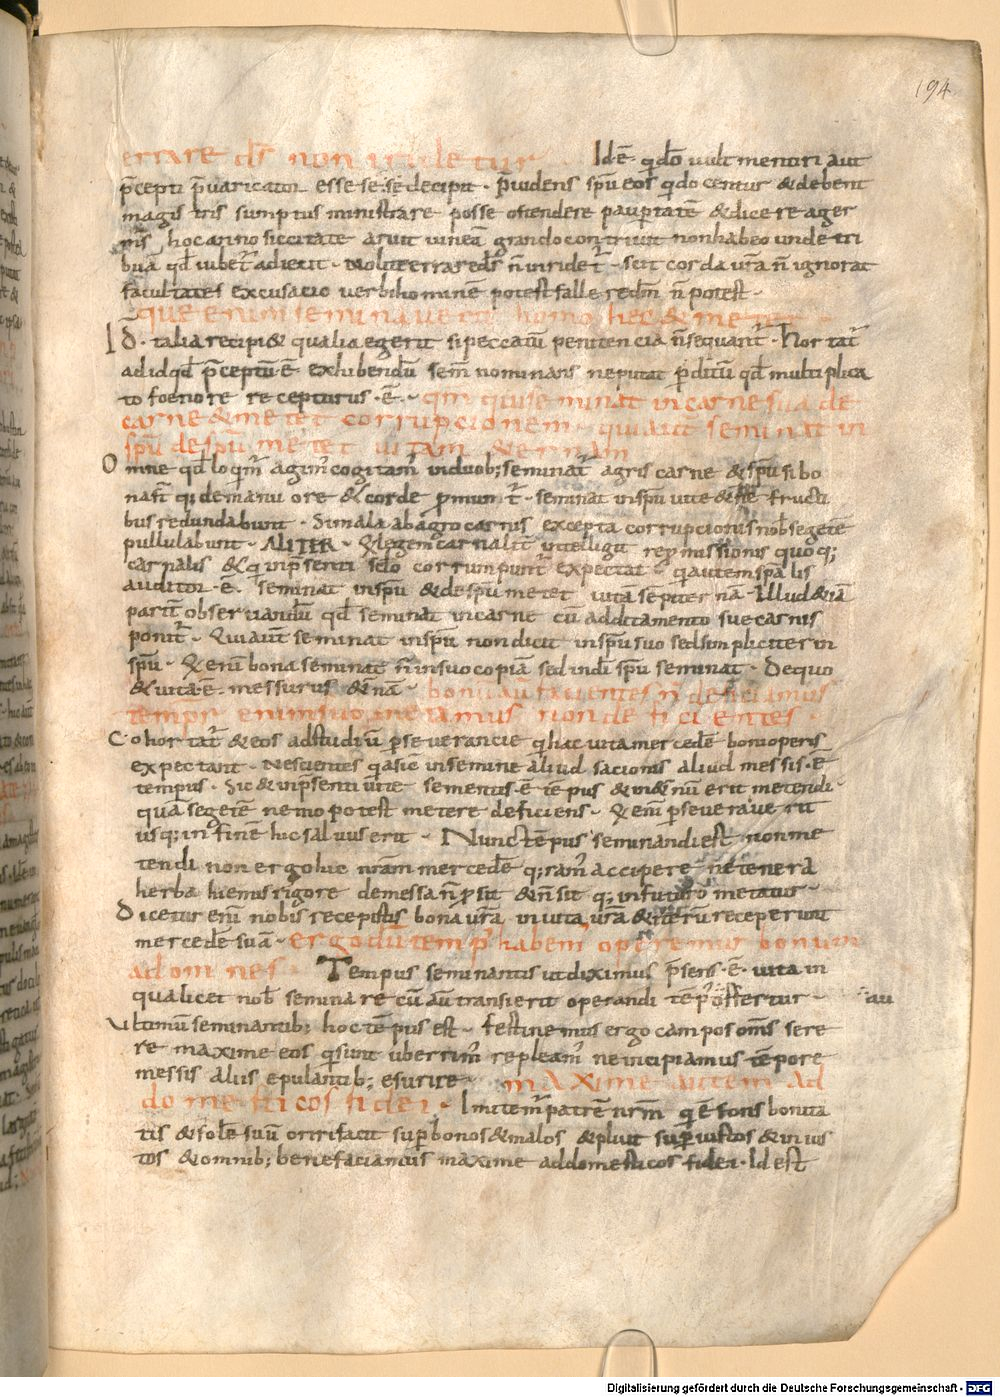 194
errare ds̄ non irridetur Idē qđo vult mentiri aut
p̄cepti p̄uaricator esse se ise decipit · p̄uidens sp̄u eos qđo centur & debent
magistris sumptus ministrare posse ostendere paup̱tatē & dicere ager
hoc anno siccitate aruit uineā grando contriuit non habeo unde tri
buā qđ iubet̄ adiecit · Nolite errare ds̄ n̄ irridet̄ · scit corda ur̄a n̄ ignorat
facultates excusacio uerbi hominē potest fallere dm̄ n̄ potest ·
que enim seminauerit homo hec & metet ·
Iđ · talia recipi& qualia egerit si peccatū penitencia n̄ sequat̄ · Hortat̄
ad id qđ p̄ceptū ē exhibendū sem̄ nominans ne putat p̱ditū qđ multiplica
to foenore recepturus · ē · qm̄ qui seminat in carne sua de
carne & metet corrupcionem · qui aut̄ seminat in
sp̄u de sp̄u metet uitam &ernam
Omne qđ loqm̄ agim̄ cogitam̄ in duob; seminat̄ agris carne & sp̄u si bo
na st̄ q; de manu ore & corde p̱mun t̄ · seminat in sp̄u uite &ne fructi
bus redundabunt · Si mala ab agro carnis excepta corrupcionis nob̄ segetē
pullulabunt · ALITER · & legem carnalit̄ intelligit repmissionis quoq;
carnalis & q̄ in p̄senti sclo corrumpunt̄ expectat · q̄ autem sp̄alis
auditor ē · seminat in sp̄u & de sp̄u metet uita sempiternā · Illud &iā
parit̄ obseruandū qđ seminat in carne cū additamento sue carnis
ponit̄ · Qui aut̄ seminat in sp̄u non dicit in sp̄u suo sed simpliciter in
sp̄u · & eni bona seminat n̄ in suo copiā sed in dī sp̄u seminat · De quo
& uita ē messurus &nā · bonū aut̄ facientes n̄ deficiamus
tempr̄ enim suo metamus non deficientes ·
Cohortat̄ & eos ad studiū p̱seuerancie q̄ hac uita mercedē boni operis
expectant · Nescientes qa sic in semine aliud sacionis aliud messis · ē
tempus · Sic & in p̄senti uite sementis · ē tēpus & ueniū erit metendi ·
quā segetē nemo potest metere deficiens · & eni p̱seuerauerit
usq; in finē hic saluus erit · Nunc tēpus seminandi est non me
tendi non ergo hic nr̄am mercedē q;ram̄ accipere ne tenera
herba hiemis rigore demessa n̄ p̱sit & n̄ sit q; in futuro metatur ·
Dicetur eni nobis recepistis bona ur̄a in uita ur̄a & iterū receperunt
mercedē suā · ergo dū temp̱ habem̄ operemur bonum
ad omnes · Tempus seminantis ut diximus p̄sens · ē · uita in
qua licet nob̄ seminare cū aut̄ transierit operandi tēp̱ offertur · au
Ultimū seminantib; hoc tēpus est · festinemus ergo campos om̄s sere
re maxime eos q̄ sunt uberrim̄ repleam̄ ne incipiamus tēpore
messis aliis epulantib; esurire · maxime autem ad
domesticos fidei · Imitem̄ patrē nrm̄ q̄ ē fons bonita
tis & solē suū oriri facit sup̱ bonos & malos & pluit sup̱ iustos & inius
tos & omnib; benefaciamus maxime ad domesticos fidei · Id est
Digitalisierung gefördert durch die Deutsche Forschungsgemeinschaft - DFG